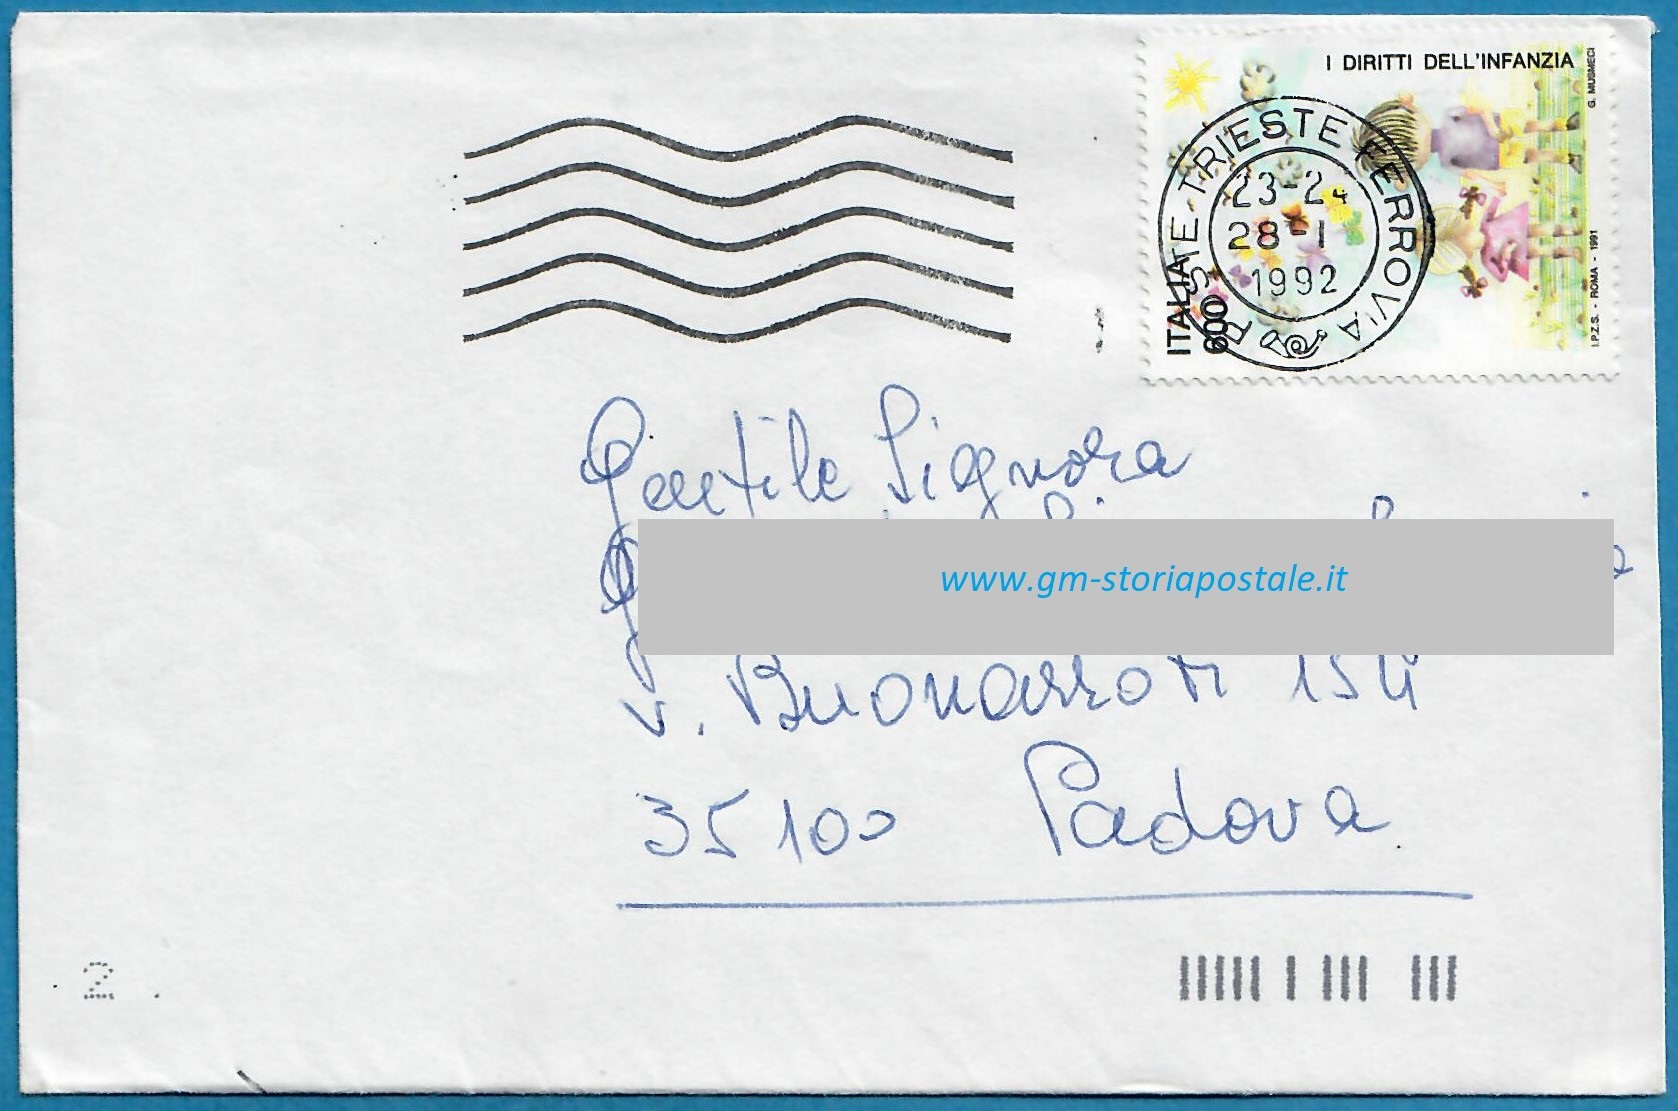 I DIRITTI DELL'INFANZIA
G. MUSMECI
I.P.Z.S. - ROMA - 1991
ITALIA
600
TRIESTE FERROV'A
23-24
28-1
1992
Gentile Signora
www.gm-storiapostale.it
v. Buonarroti 154
35100 Padova
2